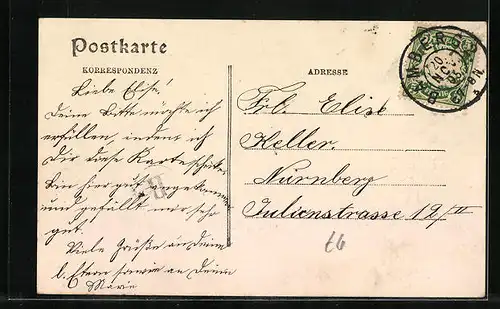 Postkarte
KORRESPONDENZ
Liebe Elise!
Deine Bitte möchte ich
erfüllen, indem ich
Dir diese Karte schicke.
Bin hier gut angekommen
und gefällt mir sehr
gut.
Viele Grüße an Deine
l. Eltern sowie an Deine
Marie
ADRESSE
Frl. Elise
Keller.
Nürnberg
Julienstrasse 12/II
BAMBERG